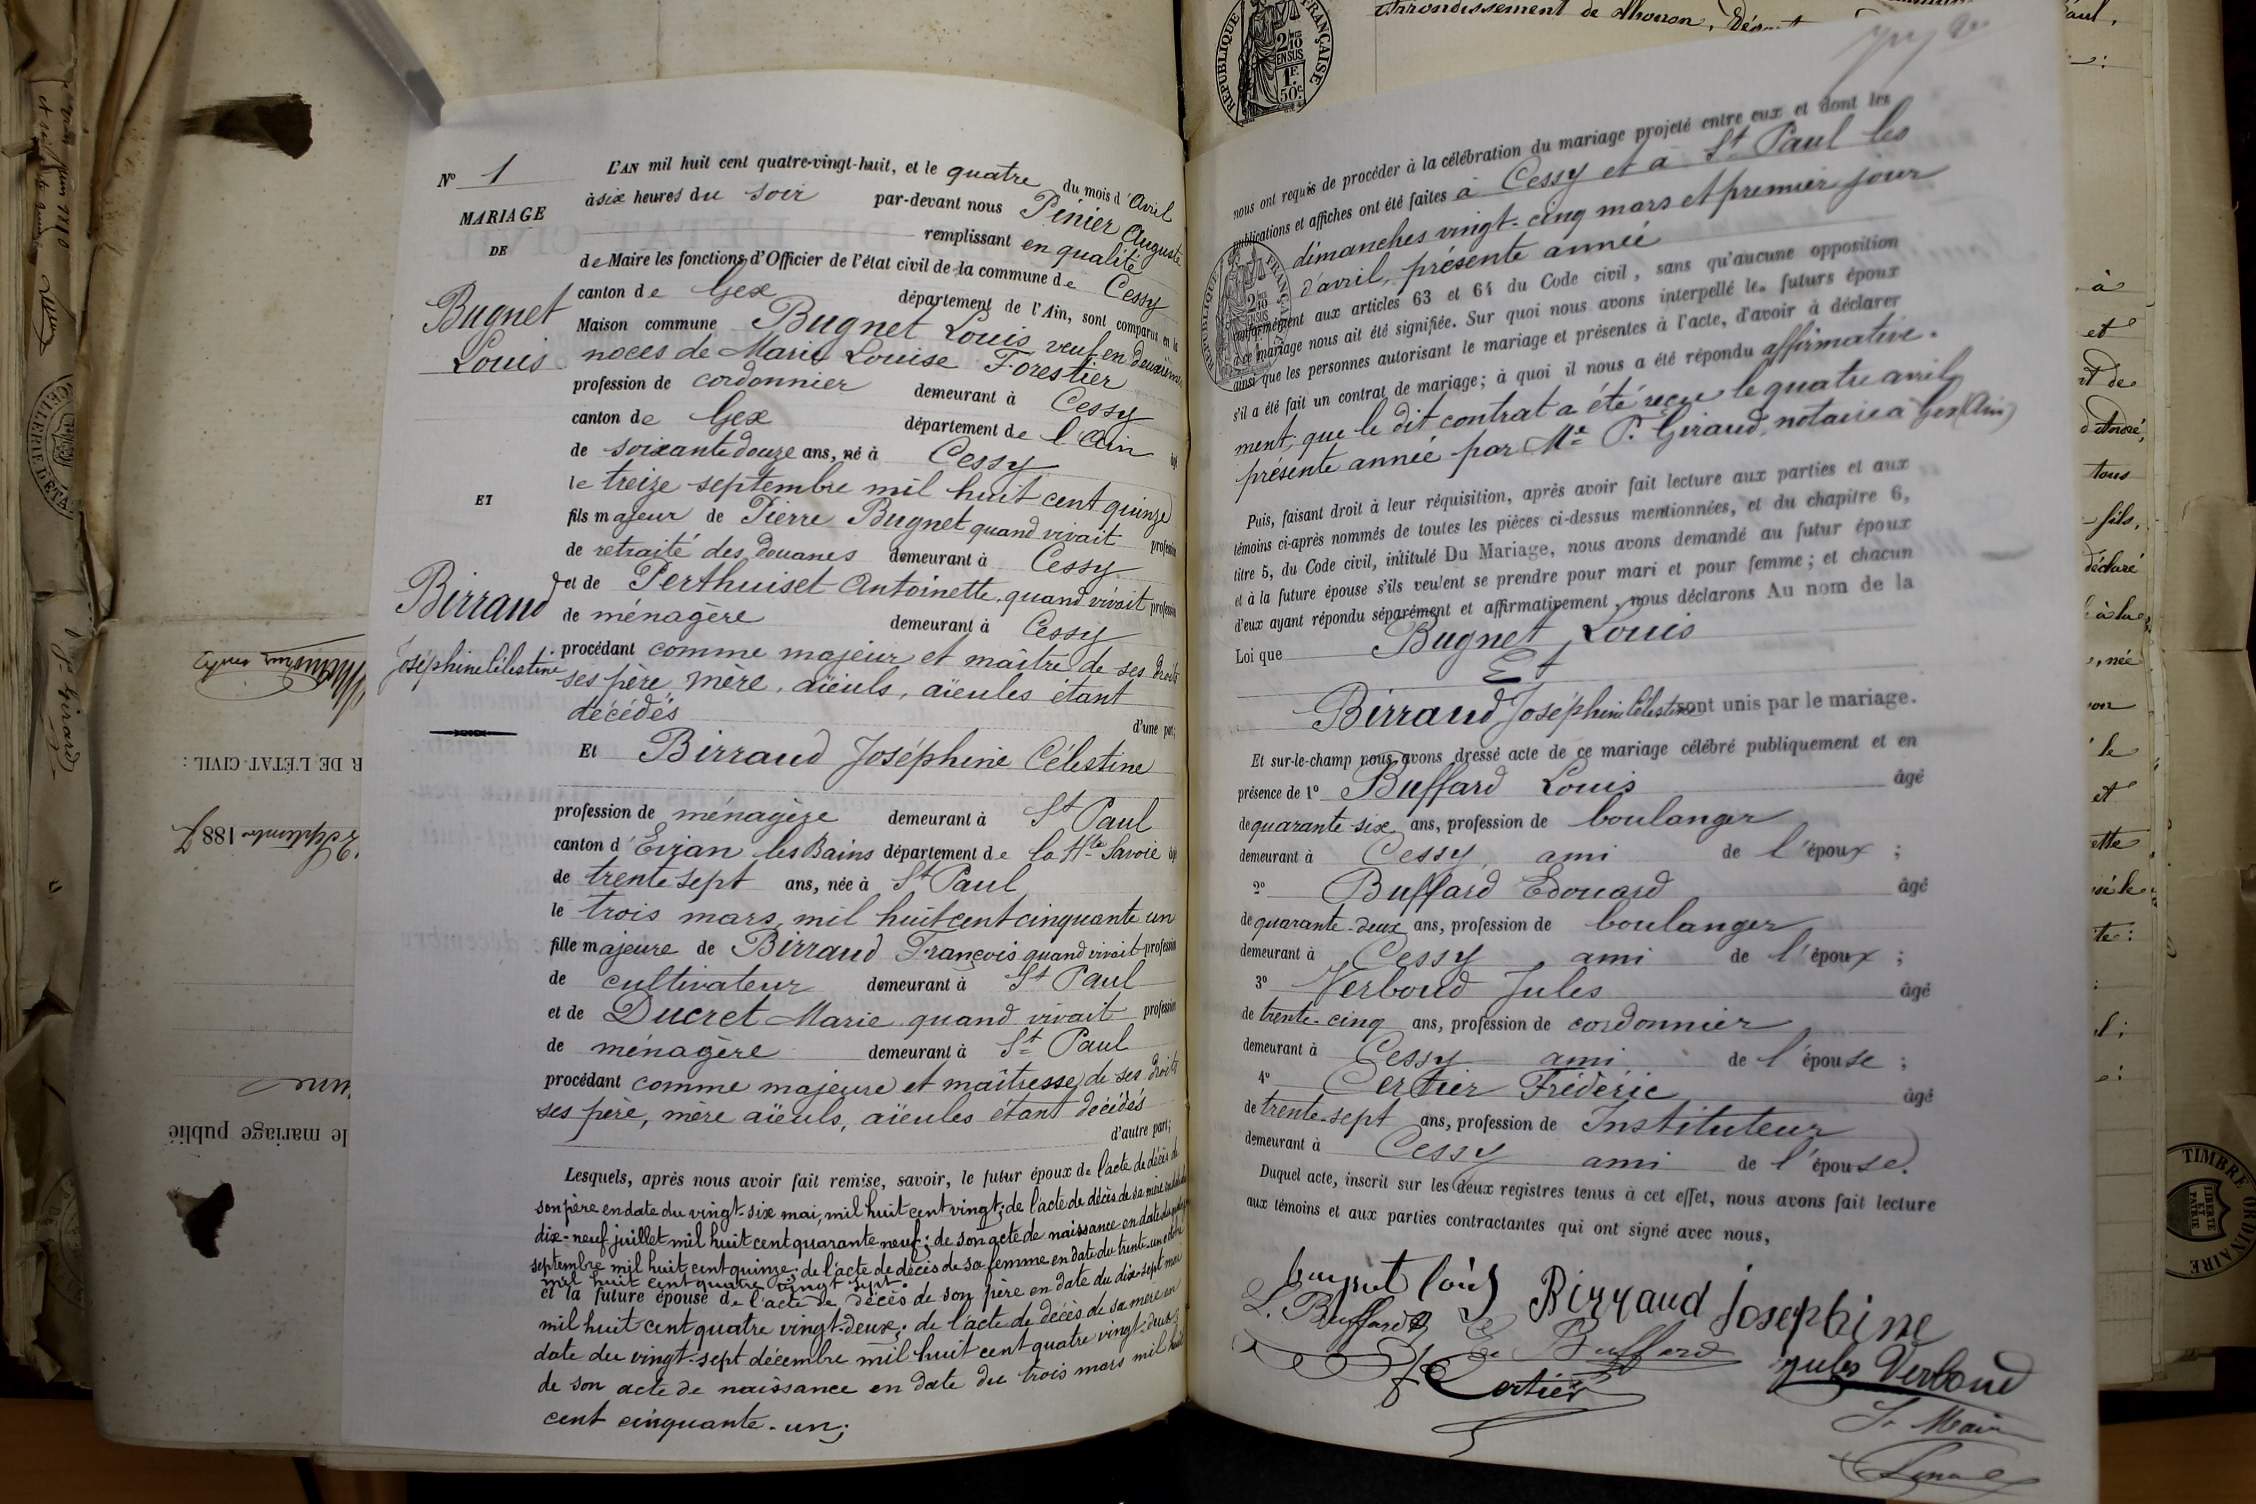 N° 1
MARIAGE
DE
Bugnet
Louis
ET
Birraud
Joséphine Célestine
L'AN mil huit cent quatre-vingt-huit, et le quatre du mois d'Avril
à six heures du soir par-devant nous Pénier Auguste
remplissant en qualité
de Maire les fonctions d'Officier de l'état civil de la commune de Cessy
canton de Gex département de l'Ain, sont comparus en la
Maison commune Bugnet Louis veuf en deuxième
noces de Marie Louise Forestier
profession de cordonnier demeurant à Cessy
canton de Gex département de l'Ain âgé
de soixante douze ans, né à Cessy
le treize septembre mil huit cent quinze
fils majeur de Pierre Bugnet quand vivait profession
de retraité des Douanes demeurant à Cessy
et de Perthuiset Antoinette, quand vivait profession
de ménagère demeurant à Cessy
procédant comme majeur et maître de ses droits
ses père, mère, aïeuls, aïeules étant
décédés
d'une part;
Et Birraud Joséphine Célestine
profession de ménagère demeurant à St Paul
canton d'Evian les Bains département de la Hte Savoie âgé
de trente sept ans, née à St Paul
le trois mars mil huit cent cinquante un
fille majeure de Birraud François quand vivait profession
de cultivateur demeurant à St Paul
et de Ducret Marie quand vivait profession
de ménagère demeurant à St Paul
procédant comme majeure et maîtresse de ses droits
ses père, mère aïeuls, aïeules étant décédés
d'autre part;
Lesquels, après nous avoir fait remise, savoir, le futur époux de l'acte de décès de
son père en date du vingt-six mai, mil huit cent vingt; de l'acte de décès de sa mère en date du
dix-neuf juillet mil huit cent quarante neuf; de son acte de naissance en date du
septembre mil huit cent quinze; de l'acte de décès de sa femme en date du trente-un octobre
mil huit cent quatre vingt sept.
et la future épouse de l'acte de décès de son père en date du dix-sept mai
mil huit cent quatre vingt-deux; de l'acte de décès de sa mère en
date du vingt-sept décembre mil huit cent quatre vingt-deux
de son acte de naissance en date du trois mars mil huit
cent cinquante-un;
nous ont requis de procéder à la célébration du mariage projeté entre eux et dont les
publications et affiches ont été faites à Cessy et à St Paul les
dimanches vingt-cinq mars et premier jour
d'avril, présente année
conformément aux articles 63 et 64 du Code civil, sans qu'aucune opposition
à ce mariage nous ait été signifiée. Sur quoi nous avons interpellé les futurs époux
ainsi que les personnes autorisant le mariage et présentes à l'acte, d'avoir à déclarer
s'il a été fait un contrat de mariage; à quoi il nous a été répondu affirmative-
ment; que le dit contrat a été reçu le quatre avril
présente année par Me P. Giraud, notaire à Gex (Ain)
Puis, faisant droit à leur réquisition, après avoir fait lecture aux parties et aux
témoins ci-après nommés de toutes les pièces ci-dessus mentionnées, et du chapitre 6,
titre 5, du Code civil, intitulé Du Mariage, nous avons demandé au futur époux
et à la future épouse s'ils veulent se prendre pour mari et pour femme; et chacun
d'eux ayant répondu séparément et affirmativement, nous déclarons Au nom de la
Loi que Bugnet Louis
Et
Birraud Joséphine Célestine sont unis par le mariage.
Et sur-le-champ nous avons dressé acte de ce mariage célébré publiquement et en
présence de 1° Buffard Louis âgé
de quarante-six ans, profession de boulanger
demeurant à Cessy, ami de l'époux;
2° Buffard Edouard âgé
de quarante-deux ans, profession de boulanger
demeurant à Cessy ami de l'époux;
3° Verboud Jules âgé
de trente-cinq ans, profession de cordonnier
demeurant à Cessy ami de l'épouse;
4° Certier Frédéric âgé
de trente-sept ans, profession de Instituteur
demeurant à Cessy ami de l'épouse.
Duquel acte, inscrit sur les deux registres tenus à cet effet, nous avons fait lecture
aux témoins et aux parties contractantes qui ont signé avec nous,
bugnet louis Birraud Josephine
L. Buffard E. Buffard Jules Verboud
Certier
Le Maire
RÉPUBLIQUE FRANÇAISE
2/10 EN SUS
1F 50c
Arrondissement de Thonon, Dép
R DE L'ÉTAT CIVIL:
septembre 1887
le mariage publié
TIMBRE ORDINAIRE